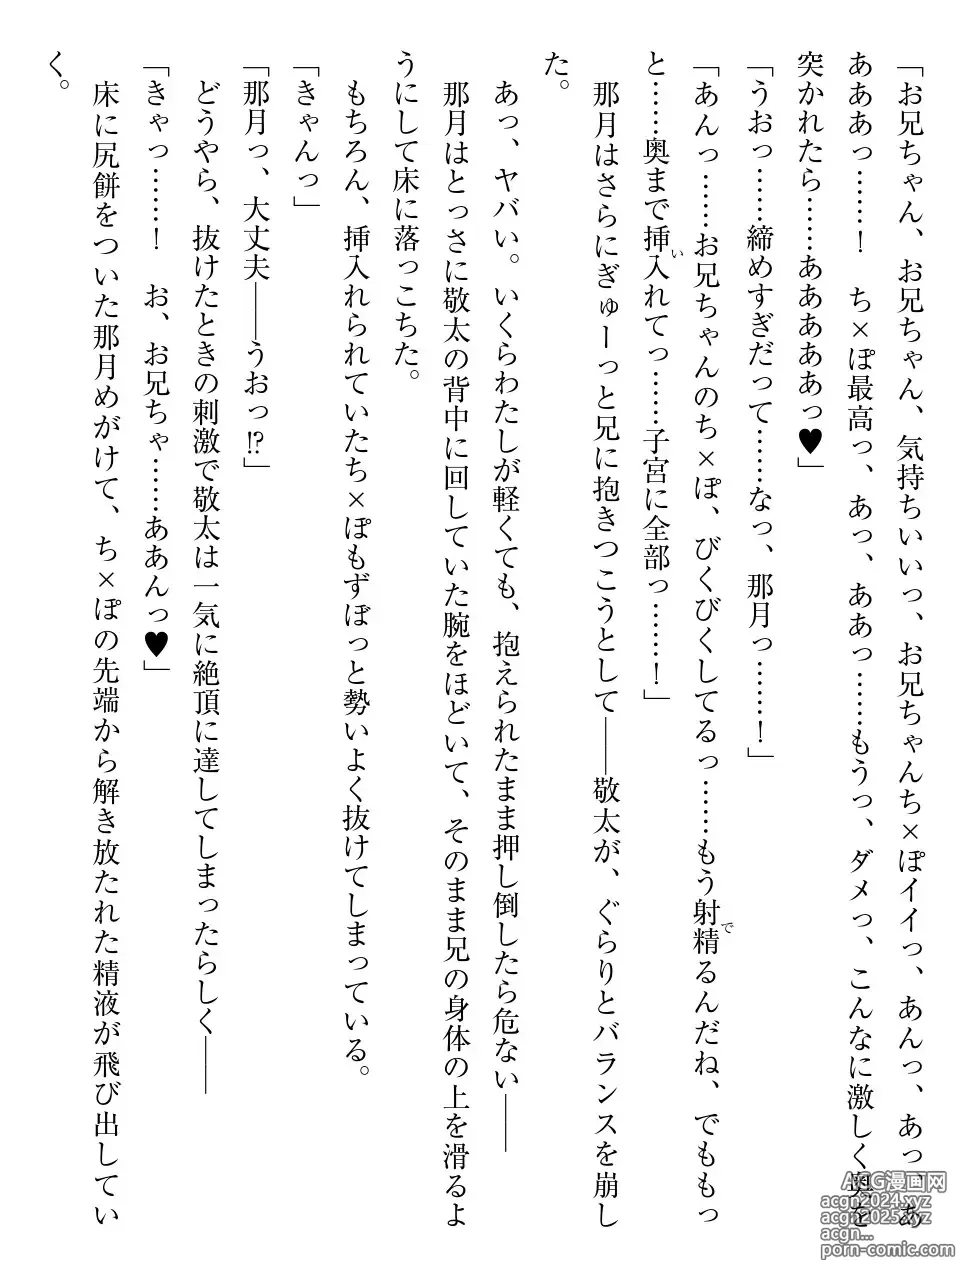 「お兄ちゃん、お兄ちゃん、気持ちいいっ、お兄ちゃんち×ぽイイっ、あんっ、あっ、あ
あああっ……！　ち×ぽ最高っ、あっ、ああっ……もうっ、ダメっ、こんなに激しく奥を
突かれたら……ああああぁっ♥」
「うおっ……締めすぎだって……なっ、那月っ……！」
「あんっ……お兄ちゃんのち×ぽ、びくびくしてるっ……もう射精るんだね、でももっ
で
と……奥まで挿入れてっ……子宮に全部っ……！」
い
那月はさらにぎゅーっと兄に抱きつこうとして――敬太が、ぐらりとバランスを崩し
た。
あっ、ヤバい。いくらわたしが軽くても、抱えられたまま押し倒したら危ない――
那月はとっさに敬太の背中に回していた腕をほどいて、そのまま兄の身体の上を滑るよ
うにして床に落っこちた。
もちろん、挿入れられていたち×ぽもずぼっと勢いよく抜けてしまっている。
「きゃんっ」
「那月っ、大丈夫――うおっ!?」
どうやら、抜けたときの刺激で敬太は一気に絶頂に達してしまったらしく――
「きゃっ……！　お、お兄ちゃ……ああんっ♥」
床に尻餅をついた那月めがけて、ち×ぽの先端から解き放たれた精液が飛び出してい
く。
ACG漫画网
acgn2024.xyz
acgn2025.xyz
acgn...
porn-comic.com